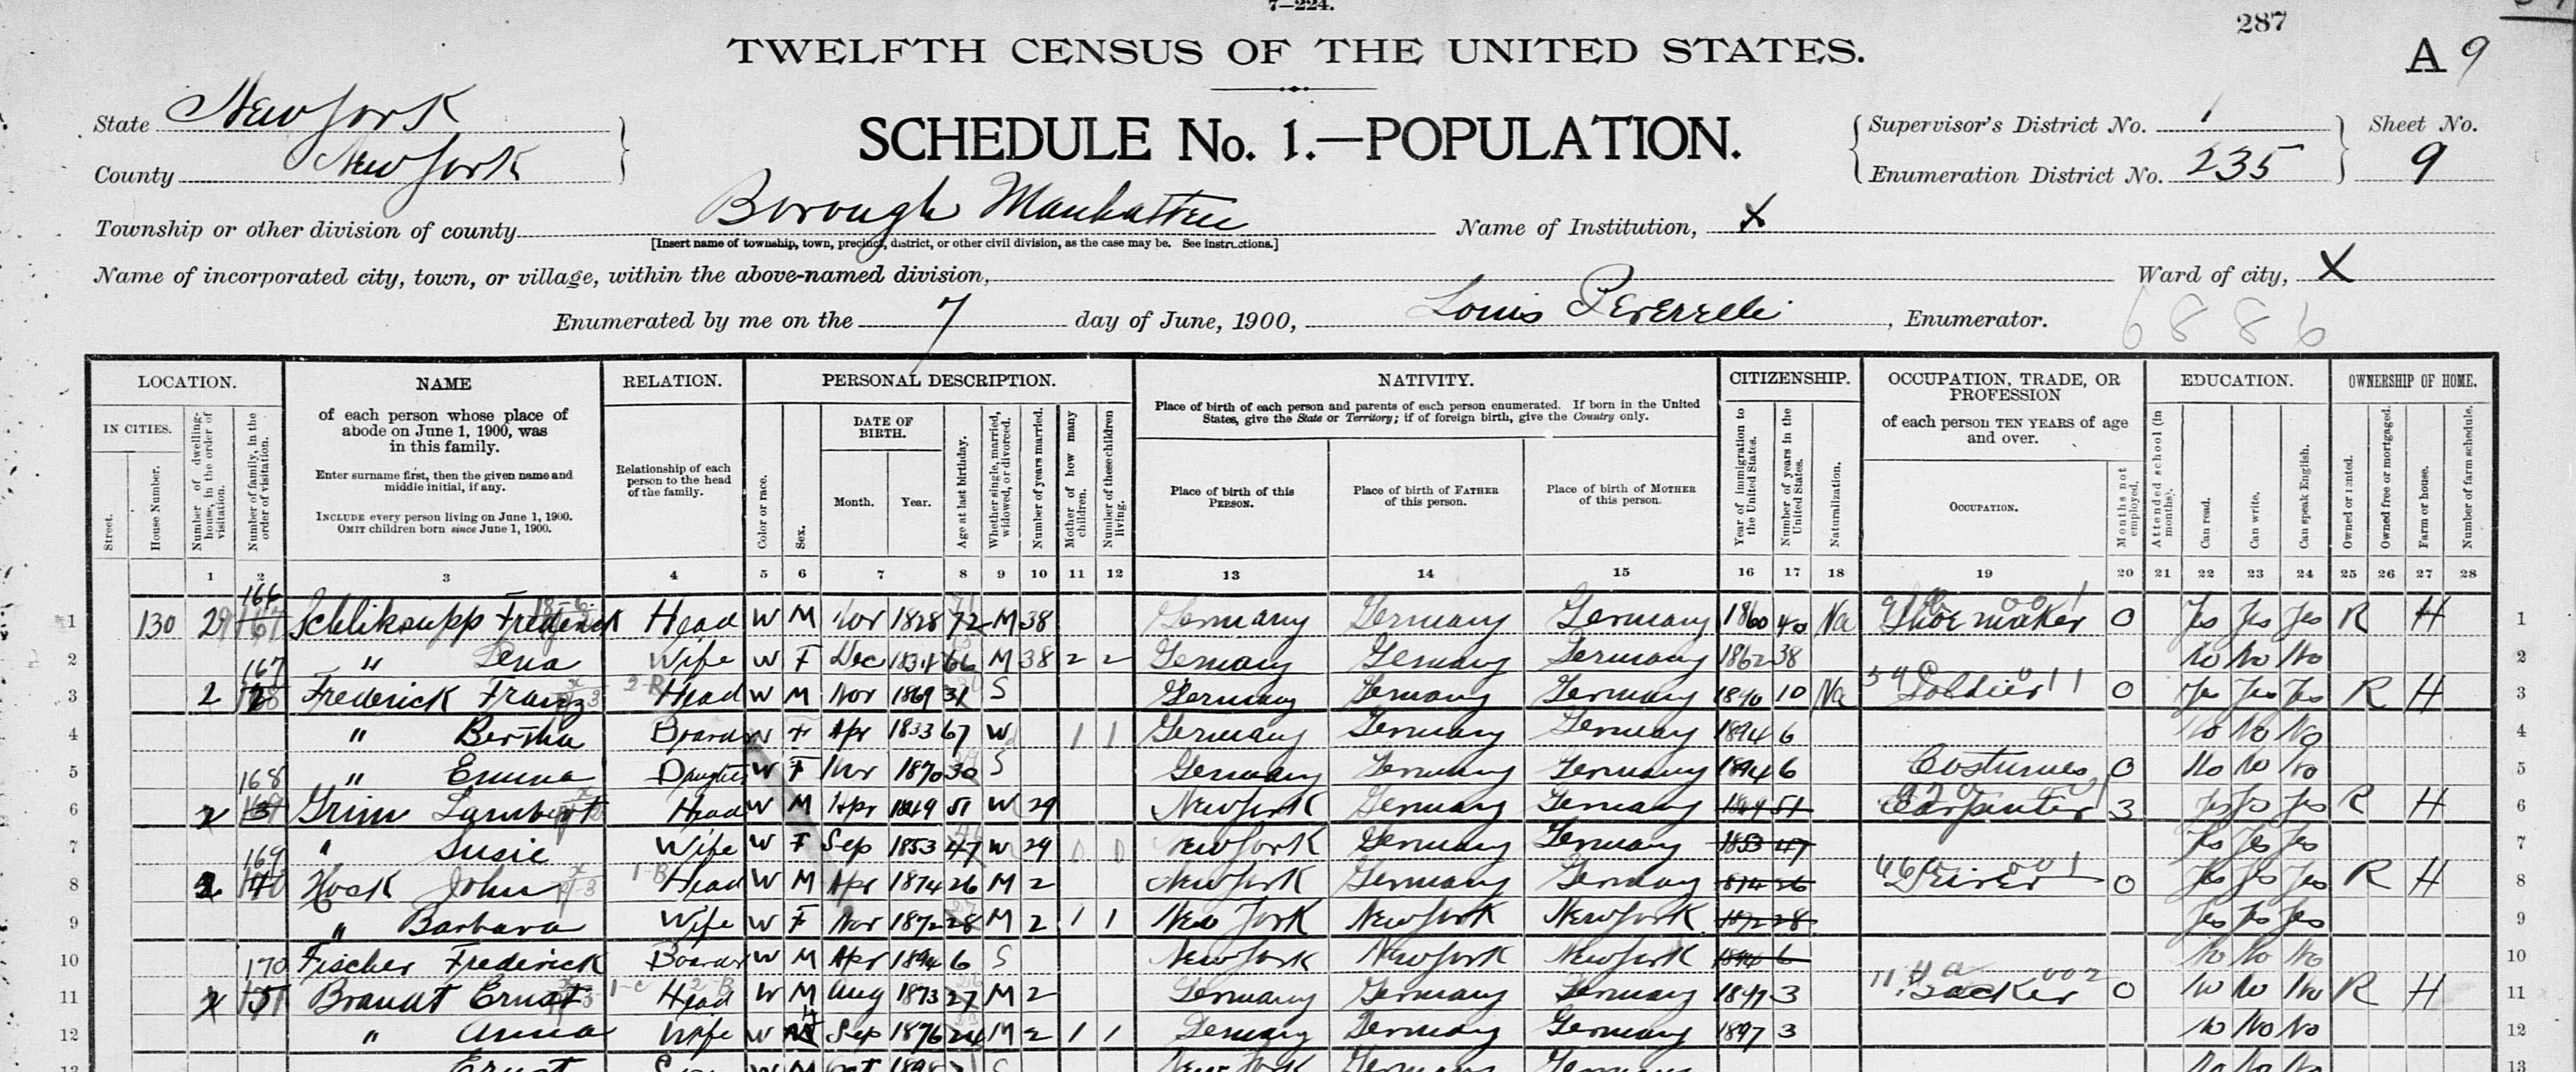 7—224.
287
TWELFTH CENSUS OF THE UNITED STATES.
A 9
State New York
SCHEDULE No. 1.—POPULATION.
Supervisor's District No. 1
Sheet No.
County New York
Enumeration District No. 235
9
Township or other division of county Borough Manhatten
Name of Institution, X
[Insert name of township, town, precinct, district, or other civil division, as the case may be. See instructions.]
Name of incorporated city, town, or village, within the above-named division,
Ward of city, X
Enumerated by me on the 7 day of June, 1900, Louis Peverelli, Enumerator.
6886
LOCATION. NAME RELATION. PERSONAL DESCRIPTION. NATIVITY. CITIZENSHIP. OCCUPATION, TRADE, OR PROFESSION EDUCATION. OWNERSHIP OF HOME.
IN CITIES.
Street.
House Number.
Number of dwelling-house, in the order of visitation.
Number of family, in the order of visitation.
of each person whose place of abode on June 1, 1900, was in this family.
Enter surname first, then the given name and middle initial, if any.
INCLUDE every person living on June 1, 1900.
OMIT children born since June 1, 1900.
Relationship of each person to the head of the family.
Color or race.
Sex.
DATE OF BIRTH.
Month. Year.
Age at last birthday.
Whether single, married, widowed, or divorced.
Number of years married.
Mother of how many children.
Number of these children living.
Place of birth of each person and parents of each person enumerated. If born in the United States, give the State or Territory; if of foreign birth, give the Country only.
Place of birth of this PERSON.
Place of birth of FATHER of this person.
Place of birth of MOTHER of this person.
Year of immigration to the United States.
Number of years in the United States.
Naturalization.
of each person TEN YEARS of age and over.
OCCUPATION.
Months not employed.
Attended school (in months).
Can read.
Can write.
Can speak English.
Owned or rented.
Owned free or mortgaged.
Farm or house.
Number of farm schedule.
1 2 3 4 5 6 7 8 9 10 11 12 13 14 15 16 17 18 19 20 21 22 23 24 25 26 27 28
1 130 29 166 Frederick Head W M Nov 1828 72 M 38 Germany Germany Germany 1860 40 Na Shoe maker 0 Yes Yes Yes R H 1
2 " Lena Wife W F Dec 1834 66 M 38 2 2 Germany Germany Germany 1862 38 No No No 2
3 2 167 Frederick Franz Head W M Nov 1869 31 S Germany Germany Germany 1890 10 Na Soldier 0 Yes Yes Yes R H 3
4 " Bertha Boarder W F Apr 1833 67 W 1 1 Germany Germany Germany 1894 6 No No No 4
5 " Emma Daughter W F Nov 1870 30 S Germany Germany Germany 1894 6 Costumes 0 No No No 5
6 168 Grim Lambert Head W M Apr 1849 51 W 29 New York Germany Germany 1849 51 Carpenter 3 Yes Yes Yes R H 6
7 " Susie Wife W F Sep 1853 47 W 29 0 0 New York Germany Germany 1853 47 Yes Yes Yes 7
8 169 Hock John Head W M Apr 1874 26 M 2 New York Germany Germany 1874 26 Driver 0 Yes Yes Yes R H 8
9 " Barbara Wife W F Nov 1872 28 M 2 1 1 New York New York New York 1872 28 Yes Yes Yes 9
10 Fischer Frederick Boarder W M Apr 1894 6 S New York New York New York 1894 6 No No No 10
11 170 Brandt Ernst Head W M Aug 1873 27 M 2 Germany Germany Germany 1897 3 Packer 0 No No No R H 11
12 " Anna Wife W Sep 1876 24 M 2 1 1 Germany Germany Germany 1897 3 No No No 12
13 Ernst W M Oct S New York Germany Germany No No No 13